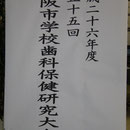 成二十六年度
五十五回
阪市学校歯科保健研究大